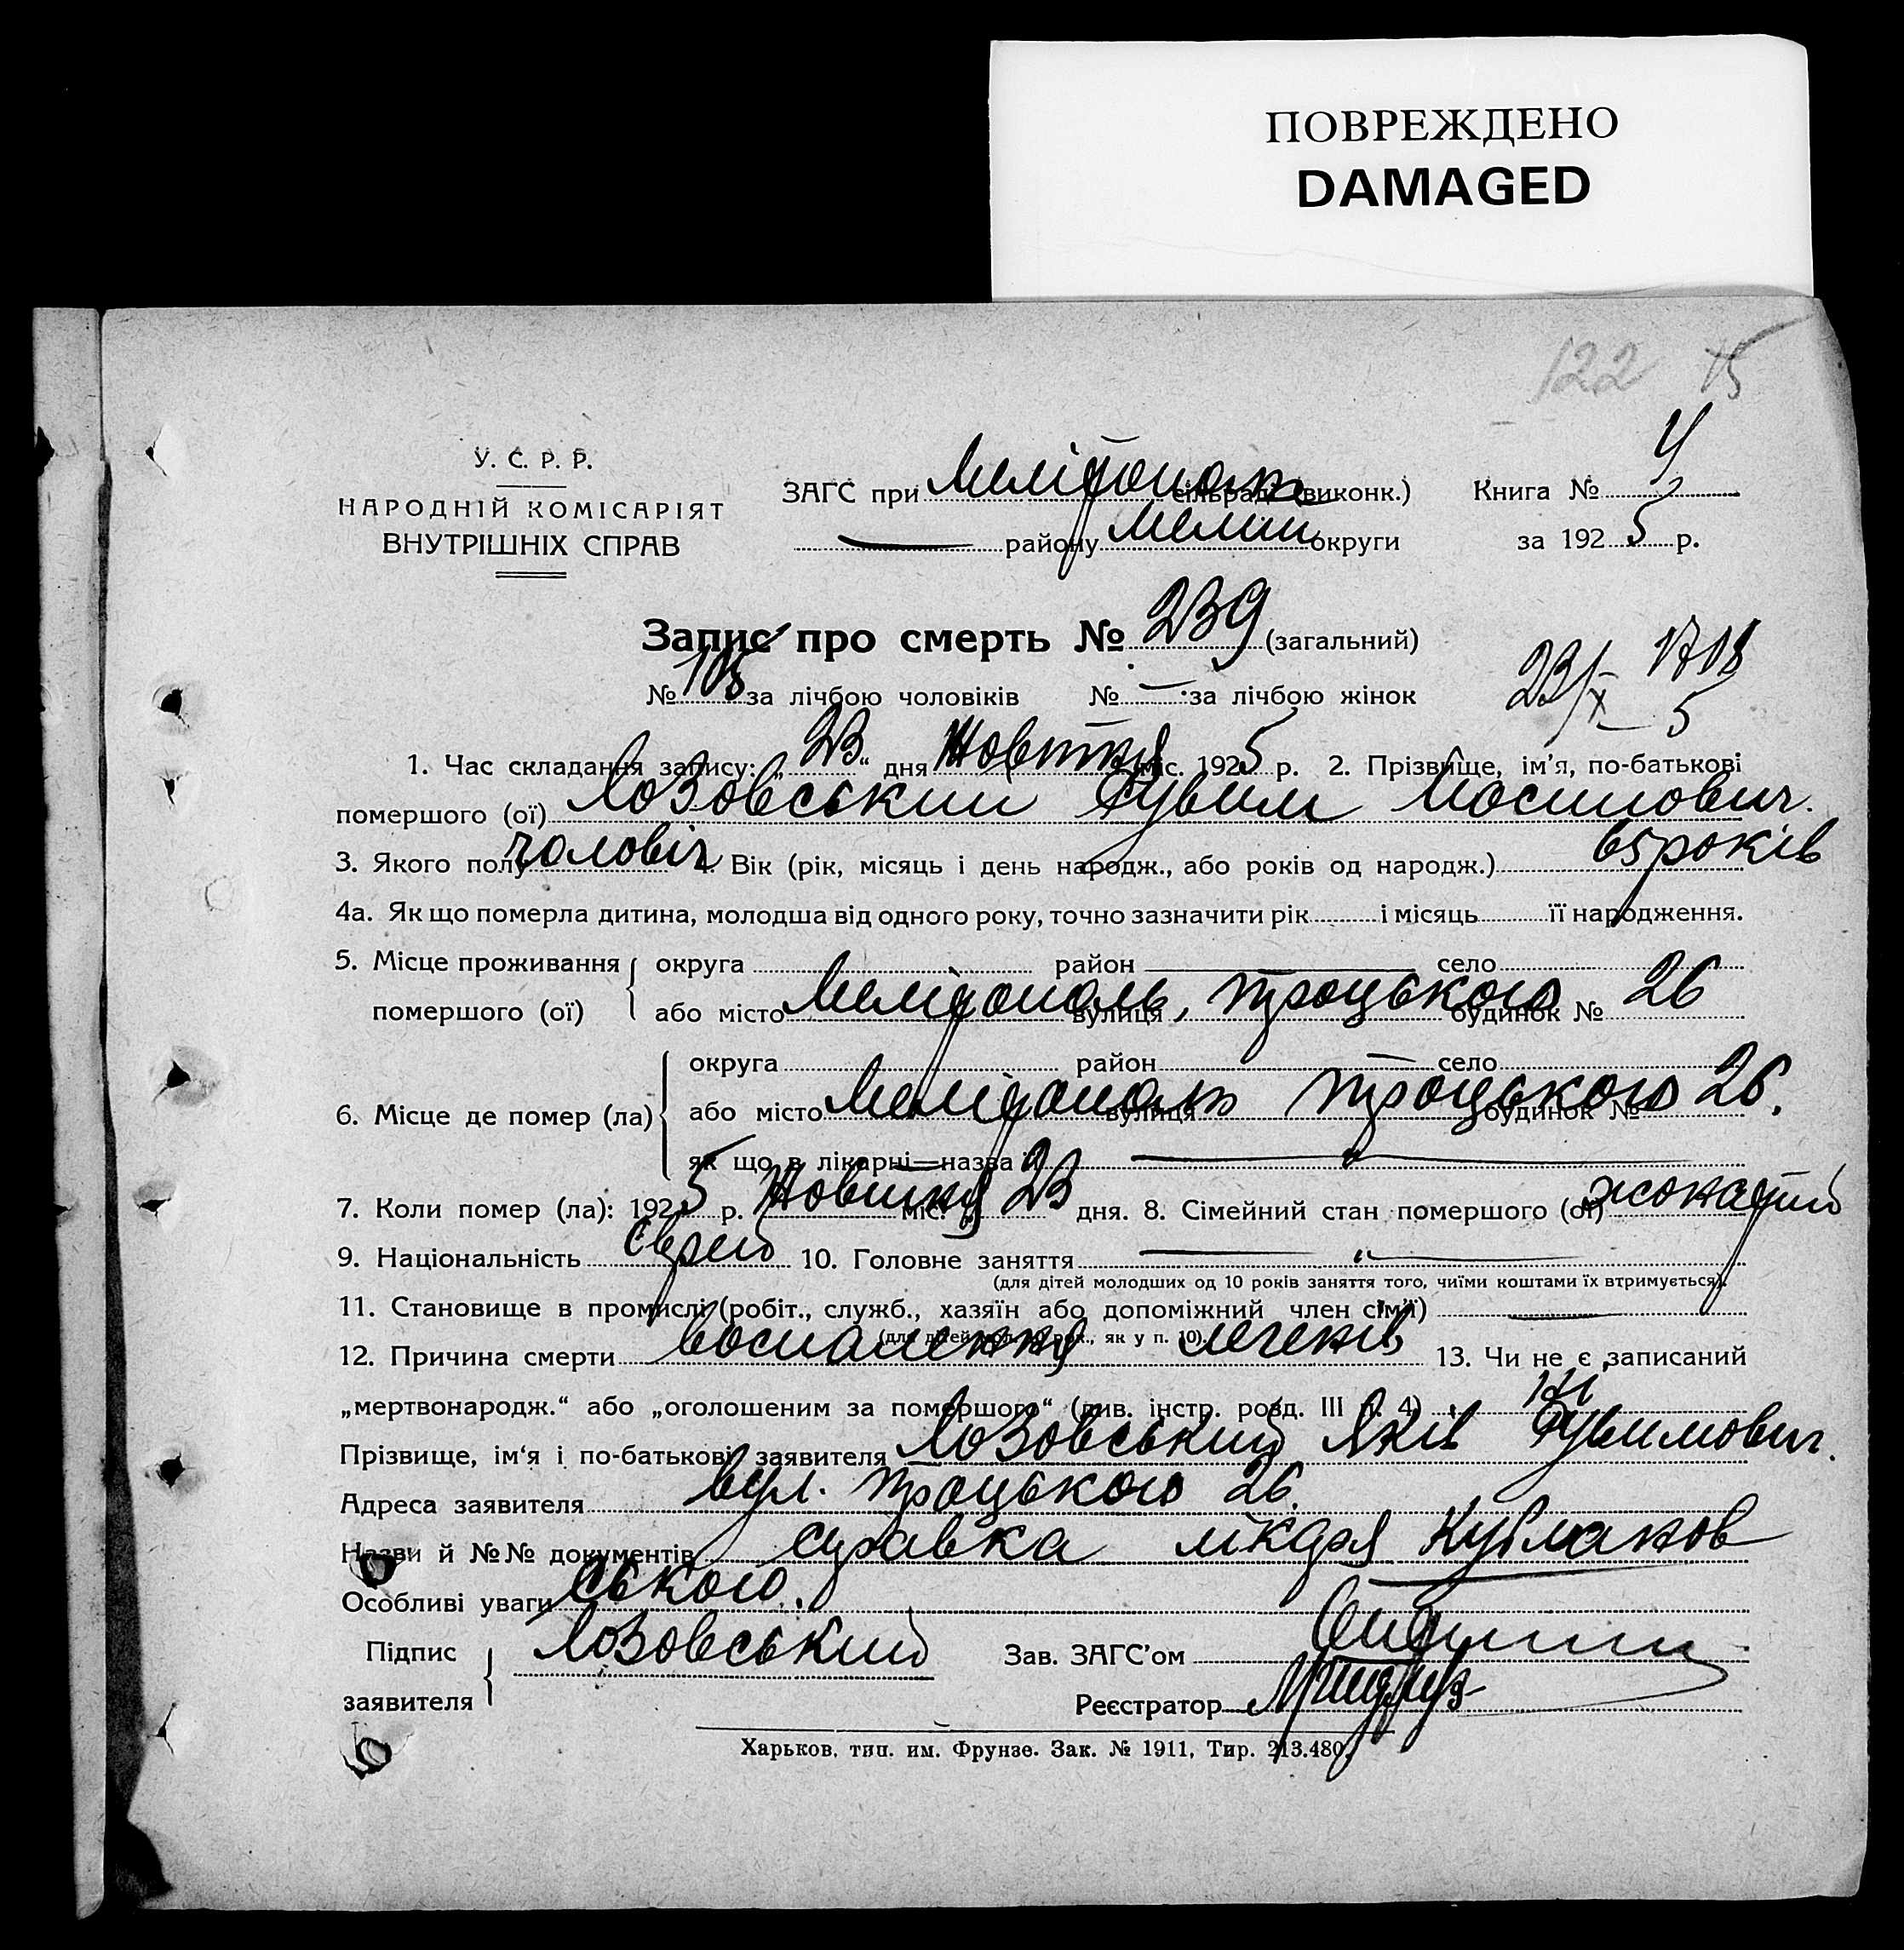 ПОВРЕЖДЕНО
DAMAGED
122 15
У. С. Р. Р.
НАРОДНІЙ КОМІСАРІЯТ
ВНУТРІШНІХ СПРАВ
ЗАГС при Мелітополь сільраді (виконк.) Книга №
району Меліт округи за 1925 р.
Запис про смерть № 239 (загальний)
№ 105 за лічбою чоловіків № — за лічбою жінок
23/X 5
1. Час складання запису: „23“ дня Жовтня міс. 1925 р. 2. Прізвище, ім'я, по-батькові
помершого (ої) Лозовський Рувим Йосипович.
3. Якого полу чоловіч 4. Вік (рік, місяць і день народж., або років од народж.) 65 років
4а. Як що померла дитина, молодша від одного року, точно зазначити рік і місяць її народження.
5. Місце проживання помершого (ої) округа район — село
або місто Мелітополь, вулиця Троцького будинок № 26
6. Місце де помер (ла) округа район — село
або місто Мелітополь вулиця Троцького будинок № 26.
як що в лікарні—назва її —
7. Коли помер (ла): 1925 р. Жовтня міс. 23 дня. 8. Сімейний стан помершого (ої) жонатий
9. Національність єврей 10. Головне заняття — „ —
(для дітей молодших од 10 років заняття того, чиїми коштами їх втримується).
11. Становище в промислі (робіт., служб., хазяїн або допоміжний член сім'ї) —
(для дітей мол. 10 рок., як у п. 10).
12. Причина смерти воспалення легенів 13. Чи не є записаний
„мертвонародж.“ або „оголошеним за помершого“ (див. інстр. розд. III п. 4) ні
Прізвище, ім'я і по-батькові заявителя Лозовський Яків Рувимович.
Адреса заявителя вул. Троцького 26.
Назви й №№ документів справка лікаря
Особливі уваги ського.
Підпис заявителя Лозовський Зав. ЗАГС'ом
Реєстратор
Харьков, тип. им. Фрунзе. Зак. № 1911, Тир. 213.480.